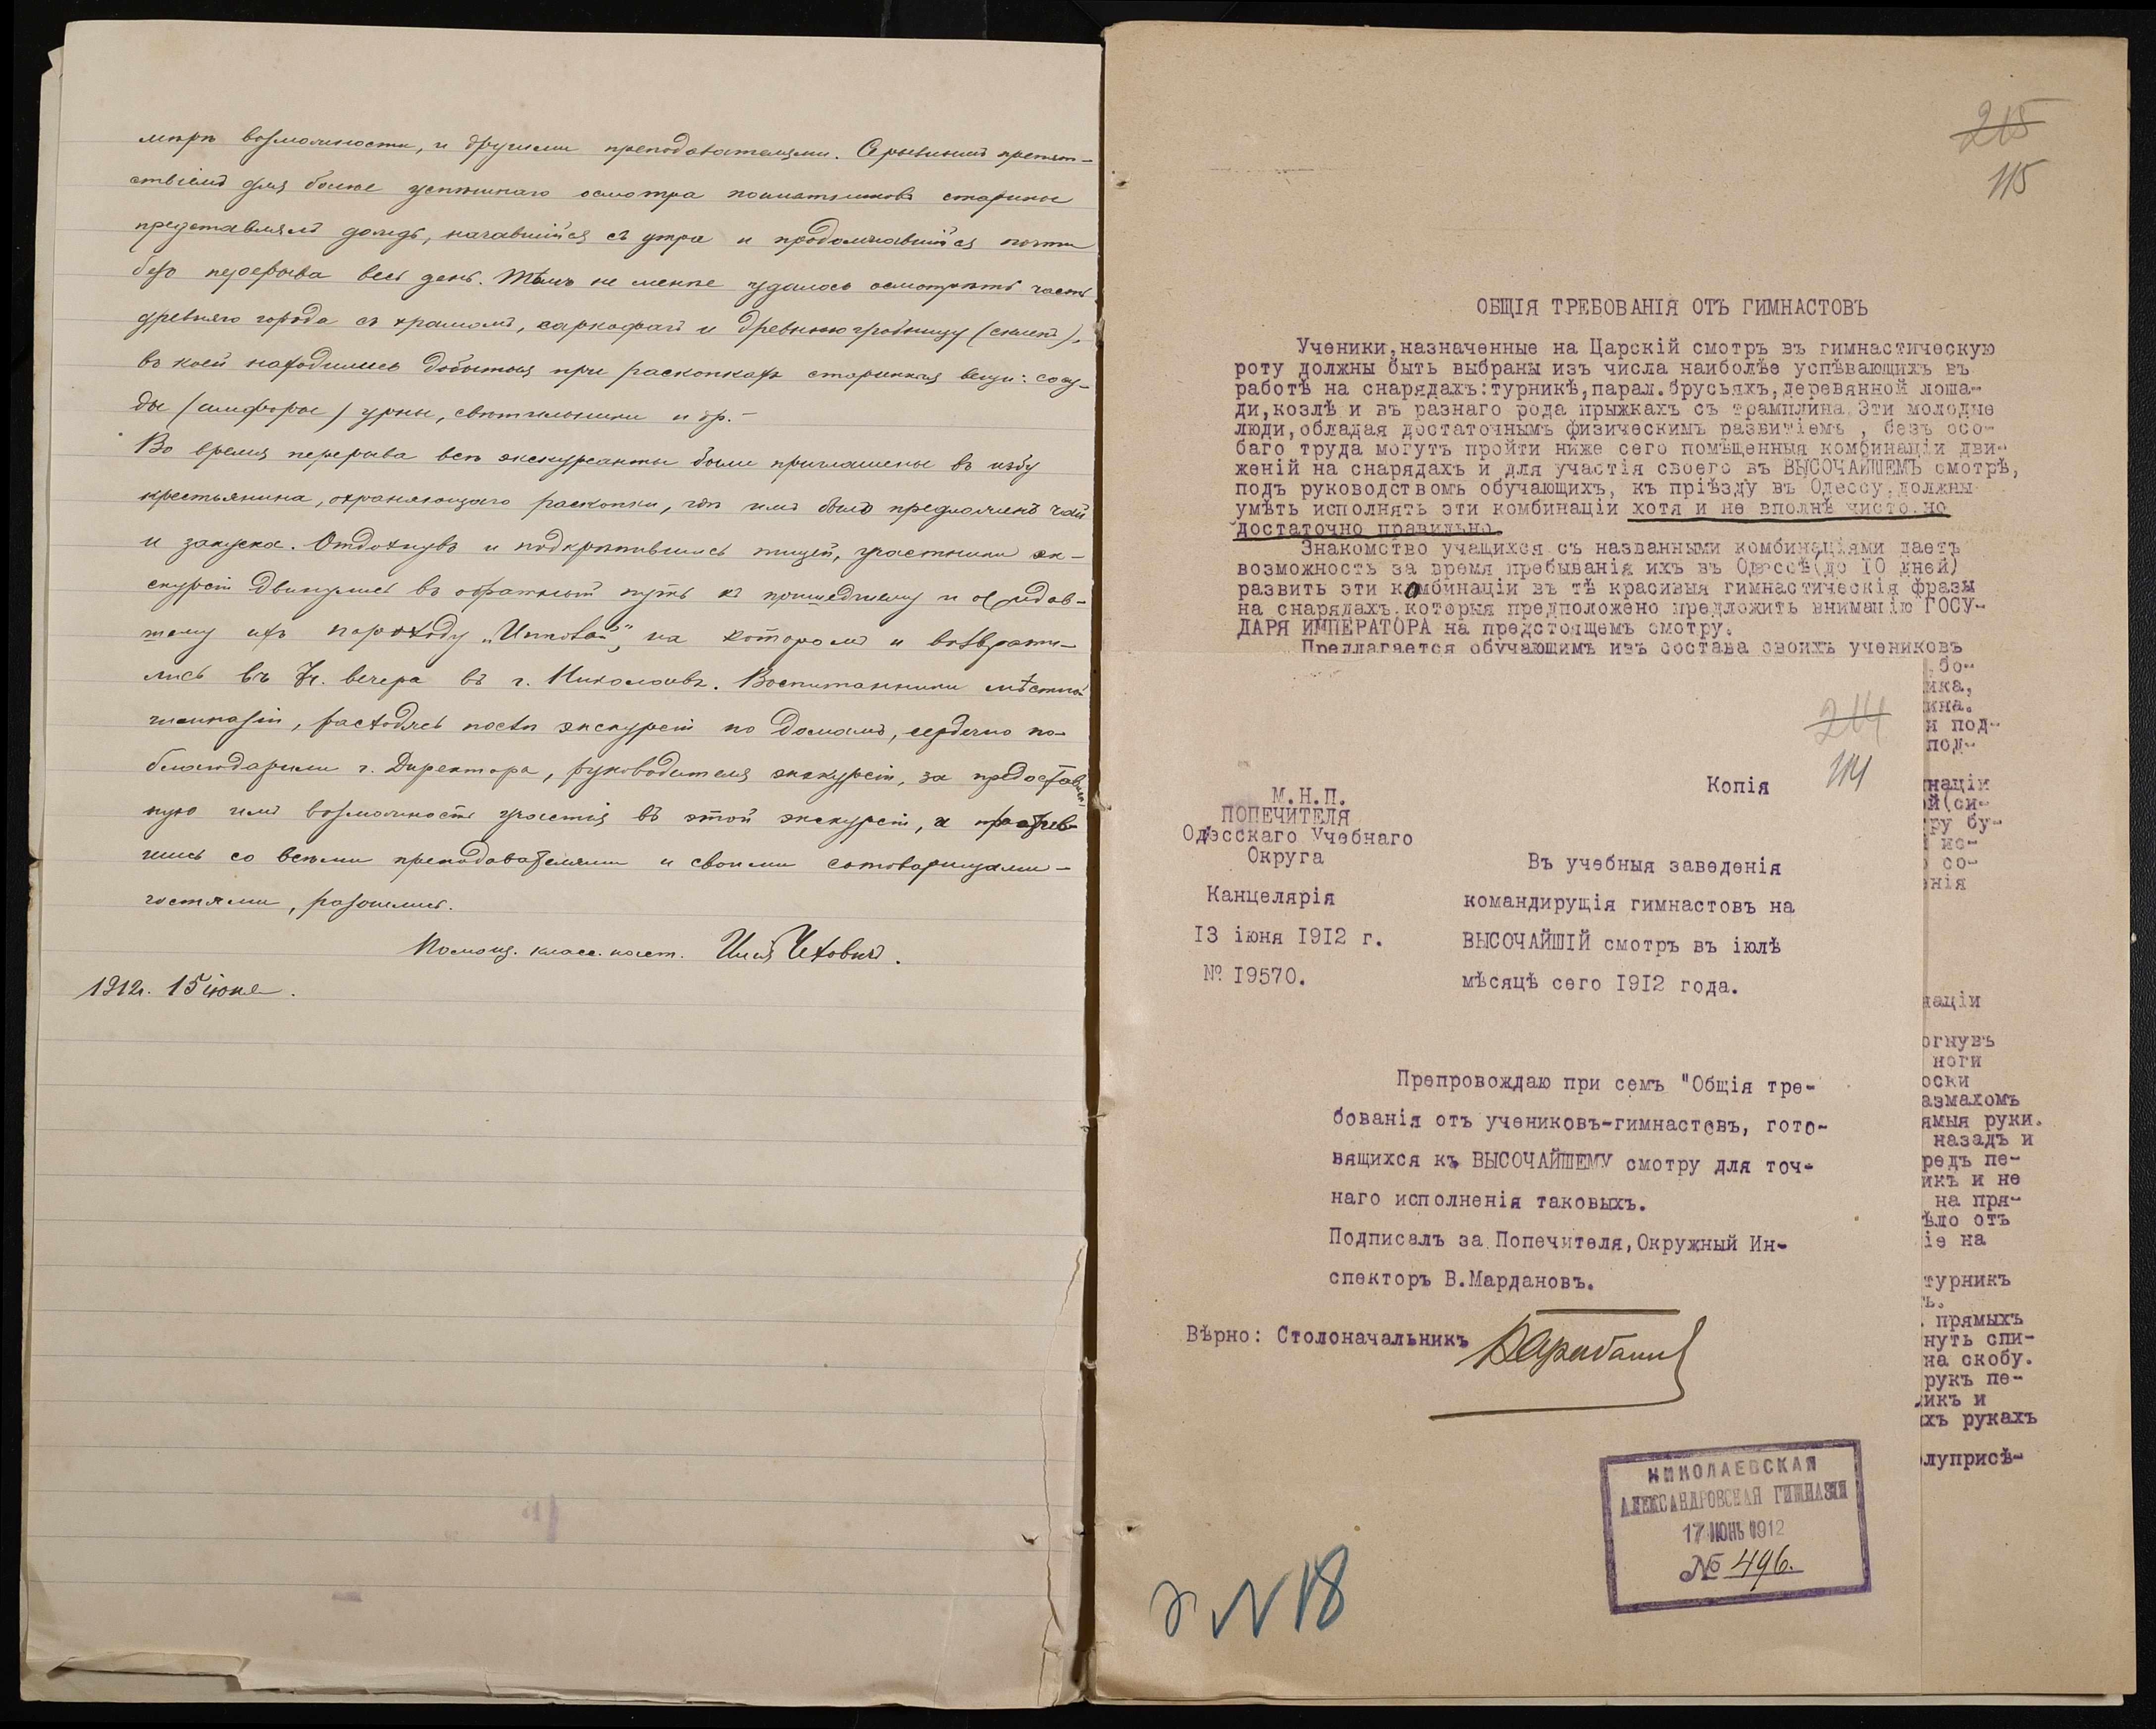 мѣрѣ возможности, и другими преподавателями. Серьезнымъ препят-
ствіемъ для болѣе успѣшнаго осмотра памятниковъ старины
представлялъ дождь, начавшійся съ утра и продолжавшійся почти
безъ перерыва весь день. Тѣмъ не менѣе удалось осмотрѣть часть
древняго города съ храмомъ, саркофагъ и древнюю гробницу (склепъ),
въ коей находились добытыя при раскопкахъ старинныя вещи: сосу-
ды (амфоры) урны, свѣтильники и др. –
Во время перерыва всѣ экскурсанты были приглашены въ избу
крестьянина, охраняющаго раскопки, гдѣ имъ былъ предложенъ чай
и закуска. Отдохнувъ и подкрѣпившись пищей, участники эк-
скурсіи двинулись въ обратный путь къ пришедшему и ожидав-
шему ихъ пароходу на которомъ и возврати-
лись въ 7ч. вечера въ г. Николаевъ. Воспитанники мѣстной
гимназіи, расходясь послѣ экскурсіи по домамъ, сердечно по-
благодарили г. Директора, руководителя экскурсіи, за предоставлен-
ную имъ возможность участія въ этой экскурсіи, и простив-
шись со всѣми преподавателями и своими сотоварищами –
гостями, разошлись.
Помощ. класс. наст. Илья Чехович.
1912г. 15 іюня.
215
115
ОБЩІЯ ТРЕБОВАНІЯ ОТЪ ГИМНАСТОВЪ
Ученики,назначенные на Царскій смотръ въ гимнастическую
роту должны быть выбраны изъ числа наиболѣе успѣвающихъ въ
работѣ на снарядахъ:турникѣ,парал.брусьяхъ,деревянной лоша-
ди,козлѣ и въ разнаго рода прыжкахъ съ трамплина.Эти молодые
люди,обладая достаточнымъ физическимъ развитіемъ , безъ осо-
баго труда могутъ пройти ниже сего помѣщенныя комбинаціи дви-
женій на снарядахъ и для участія своего въ ВЫСОЧАЙШЕМЪ смотрѣ,
подъ руководствомъ обучающихъ, къ пріѣзду въ Одессу,должны
умѣть исполнять эти комбинаціи хотя и не вполнѣ чисто,но
достаточно правильно.
Знакомство учащихся съ названными комбинаціями даетъ
возможность за время пребыванія ихъ въ Одессѣ(до 10 дней)
развить эти комбинаціи въ тѣ красивыя гимнастическія фразы
на снарядахъ,которыя предположено предложить вниманію ГОСУ-
ДАРЯ ИМПЕРАТОРА на предстоящемъ смотру.
Предлагается обучающимъ изъ состава своихъ учениковъ
бо-
ика,
ина.
и под-
под-
націи
й(си-
ру бу-
не-
со-
энія
націи
огнувъ
ноги
оски
азмахомъ
ямыя руки.
назадъ и
редъ пе-
икъ и не
на пря-
ѣло отъ
іе на
турникъ
ь.
прямыхъ
нуть спи-
на скобу.
рукъ пе-
икъ и
хъ рукахъ
луприсѣ-
214
114
Копія
М.Н.П.
ПОПЕЧИТЕЛЯ
Одэсскаго Учебнаго
Округа
Канцелярія
13 іюня 1912 г.
№ 19570.
Въ учебныя заведенія
командирущія гимнастовъ на
ВЫСОЧАЙШІЙ смотръ въ іюлѣ
мѣсяцѣ сего 1912 года.
Препровождаю при семъ "Общія тре-
бованія отъ учениковъ-гимнастовъ, гото-
вящихся къ ВЫСОЧАЙШЕМУ смотру для точ-
наго исполненія таковыхъ.
Подписалъ за Попечителя,Окружный Ин-
спекторъ В.Мардановъ.
Вѣрно: Столоначальникъ
НИКОЛАЕВСКАЯ
АЛЕКСАНДРОВСКАЯ ГИМНАЗІЯ
17 ИЮНЬ 1912
№ 496.
N 18